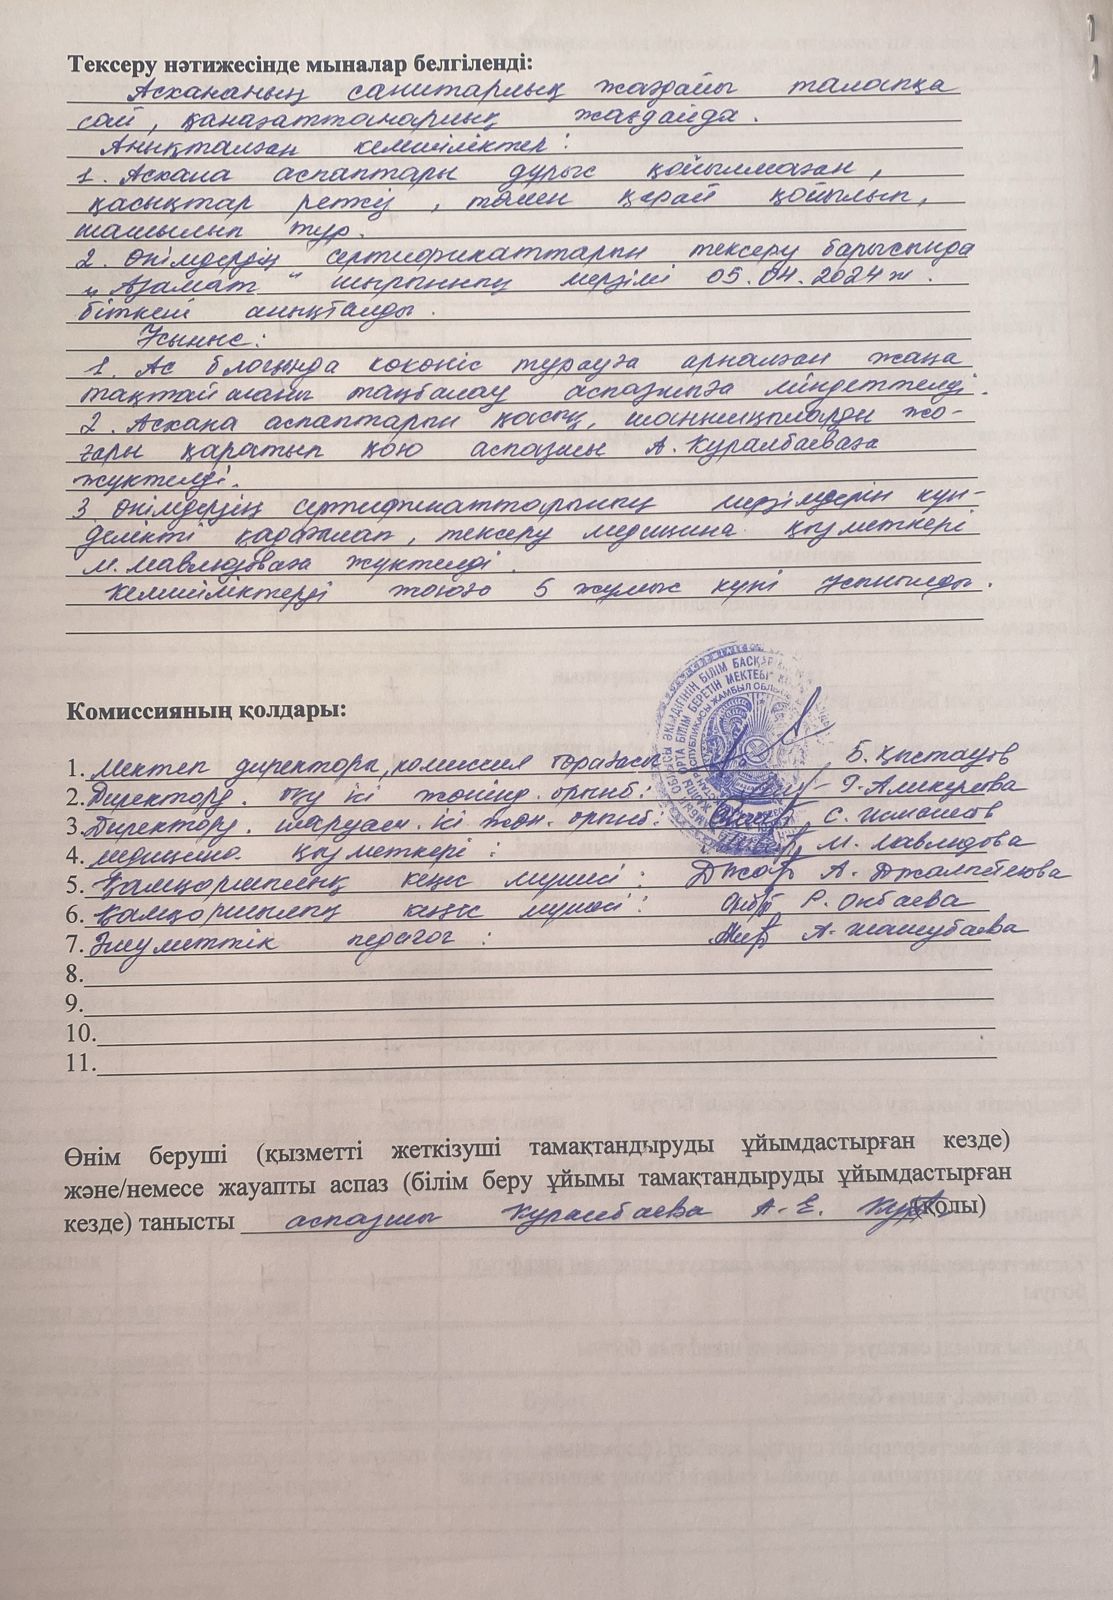 Тексеру нәтижесінде мыналар белгіленді:
Асхананың санитарлық жағдайы талапқа
сай, қанағаттанарлық жағдайда.
Анықталған кемшіліктер:
1. Асхана аспаптары дұрыс қойылмаған,
қасықтар ретсіз, төмен қарай қойылып,
шашылып тұр.
2. Өнімдердің сертификаттарын тексеру барысында
"Азамат" шырынның мерзімі 05.04.2024ж.
біткені анықталды.
Ұсыныс:
1. Ас блогында көкөніс турауға арналған жаңа
тақтайшаны таңбалау аспазшыға міндеттелді.
2. Асхана аспаптарын қасық, шанышқыларды жо-
ғары қаратып қою аспазшы А. Куралбаеваға
жүктелді.
3 Өнімдердің сертификаттарының мерзімдерін күн-
делікті қадағалап, тексеру медицина қызметкері
М. Мавлюдоваға жүктелді.
Кемшіліктерді жоюға 5 жұмыс күні ұсынылды.
ОБЛЫСЫ ӘКІМДІГІНІҢ БІЛІМ БАСҚАР
ОРТА БІЛІМ БЕРЕТІН МЕКТЕБІ"
РЕСПУБЛИКАСЫ ЖАМБЫЛ ОБЛЫСЫ
Комиссияның қолдары:
1. Мектеп директоры, комиссия төрағасы Б. Қыстауов
2. Директорд. оқу ісі жөнінд. орынб:
3. Директорд. шаруаш. ісі жөн. орынб:
4. медицина қызметкері: М. Мавлюдова
5. Қамқоршылық кеңес мүшесі: А. Джалпейсова
6. Қамқоршылық кеңес мүшесі: Р. Онбаева
7. Әлеуметтік педагог: А. Жашубаева
8.
9.
10.
11.
Өнім беруші (қызметті жеткізуші тамақтандыруды ұйымдастырған кезде)
және/немесе жауапты аспаз (білім беру ұйымы тамақтандыруды ұйымдастырған
кезде) танысты аспазшы Куралбаева А. Е. (қолы)